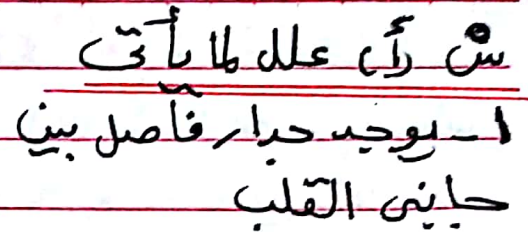 س (أ) علل لما يأتى
١- يوجد جدار فاصل بين
جانبى القلب